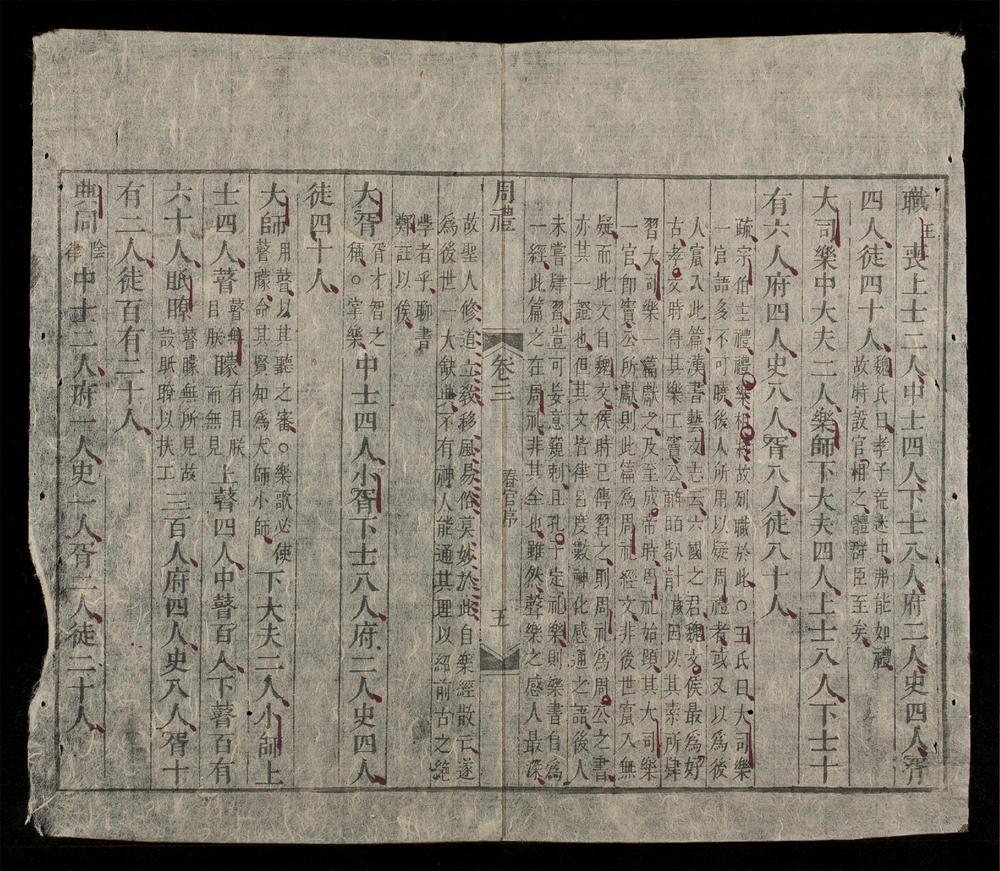 職喪上士二人中士四人下士八人府二人史四人胥
四人徒四十人魏氏曰孝子荒迷中弗能如禮故特設官相之體群臣至矣
大司樂中大夫二人樂師下大夫四人上士八人下士十
有六人府四人史八人胥八人徒八十人
疏宗伯主禮禮樂相將故列職於此○王氏曰大司樂
一官語多不可曉後人所用以疑周禮者或又以為後
人竄入此篇漢書藝文志云六國之君魏文侯最為好
古孝文時得其樂工竇公年百八十計歲因以其素所肄
習大司樂一篇獻之及至成帝時周礼始顕其大司樂
一官即竇公所獻則此篇為周礼經文非後世竄入無
疑而此文自魏文侯時已傳習之則周礼為周公之書
亦其一證也但其文皆律呂度數神化感通之語後人
未嘗肄習豈可妄意窺刺且孔子定礼樂則樂書自為
一經此篇之在周礼非其全也雖然聲樂之感人最深
周禮 卷三 春官序 五
故聖人修道立教移風易俗莫妙於此自樂經散亡遂
為後世一大缺典不有神人能通其理以紹前古之絶
學者乎聊書
鄭註以俟
大胥胥才智之稱○掌樂中士四人小胥下士八人府二人史四人
徒四十人
大師用瞽以其聽之審○樂歌必使瞽矇命其賢知為大師小師下大夫二人小師上
士四人瞽瞽無目朕矇有目朕而無見上瞽四人中瞽百人下瞽百有
六十人眡瞭瞽矇無所見故設眡瞭以扶工三百人府四人史八人胥十
有二人徒百有二十人
典同陰律中士二人府一人史一人胥二人徒二十人